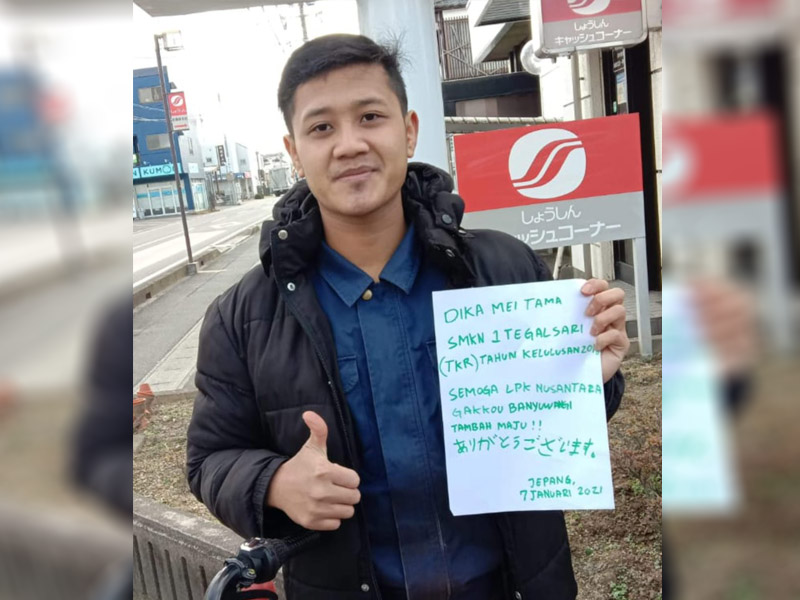 しょうしん
キャッシュコーナー
KUMO
しょうしん
ャッシュコーナー
DIKA MEI TAMA
SMKN 1 TEGALSARI
(TKR) TAHUN KELULUSAN
SEMOGA LPK NUSANTARA
GAKKOU BANYUWANGI
TAMBAH MAJU !!
ありがとうございます。
JEPANG,
7 JANUARI 2021